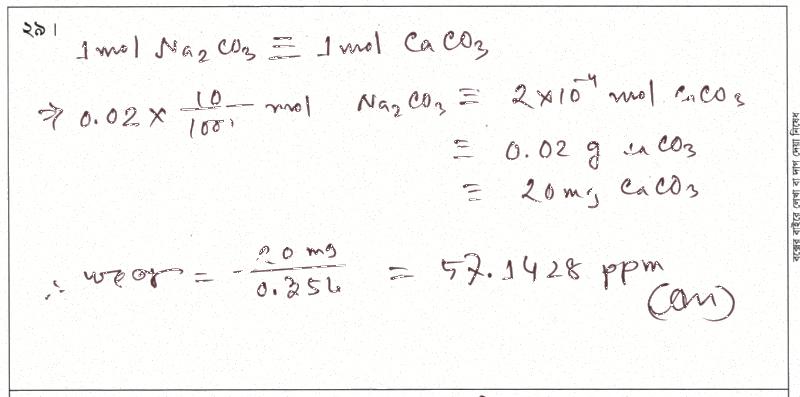 ২৯।
1 mol Na₂CO₃ ≡ 1 mol CaCO₃
⇒ 0.02 × 10/1000 mol Na₂CO₃ ≡ 2×10⁻⁴ mol CaCO₃
≡ 0.02 g CaCO₃
≡ 20 mg CaCO₃
∴ = 20 mg/0.35L = 57.1428 ppm
(Ans)
বক্সের বাইরে লেখা বা দাগ দেয়া নিষেধ